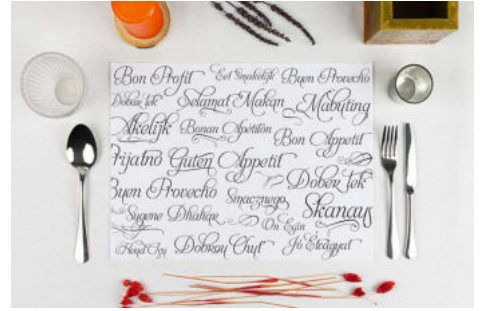 Bon Profit Eet Smakelijk Buen Provecho
Dobar tek Selamat Makan Mabuting
Akelijk Bonan Apetiton Bon Appetit
rijatno Guten Appetit Dober tek
Buen Provecho Smacznego Skanaus
Sugene Dhahar On Egin
Dobrou Chut Jó Étvágyat